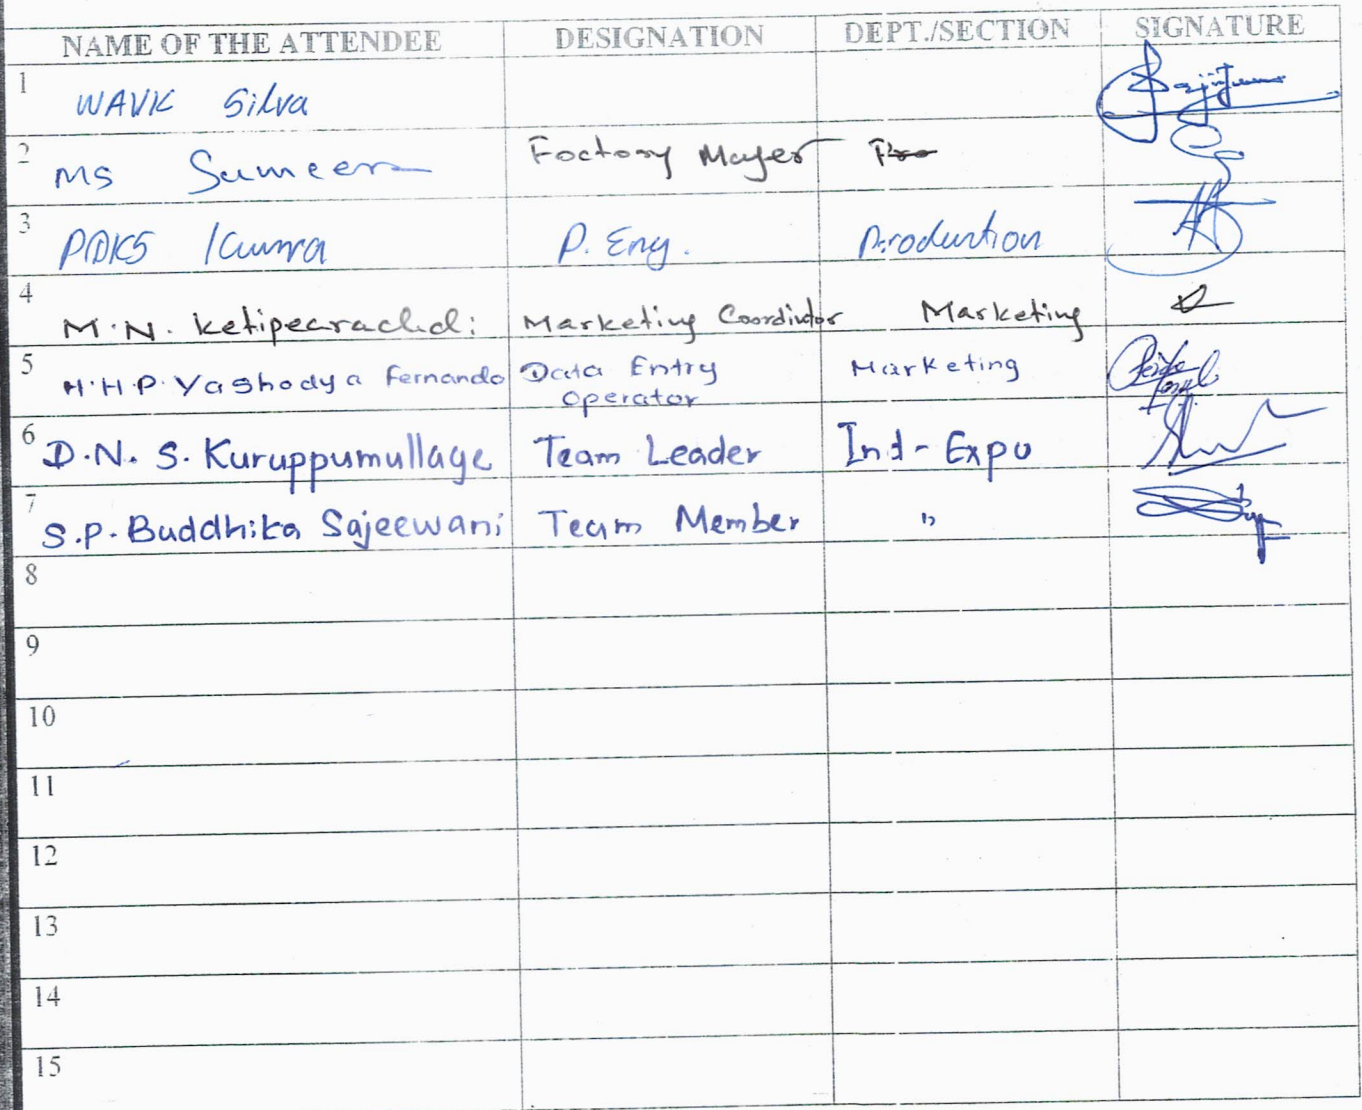 NAME OF THE ATTENDEE DESIGNATION DEPT./SECTION SIGNATURE
1 WAVK Silva
2 MS Sumeera Foctory
3 PDKS Kumra P. Eng. Production
4 M.N. Ketipearachchi Marketing Coordintor Marketing
5 H.H.P. Yashodya Fernando Data Entry Marketing
Operator
6 D.N.S. Kuruppumullage Team Leader Ind-Expo
7 S.P. Buddhika Sajeewani Team Member "
8
9
10
11
12
13
14
15